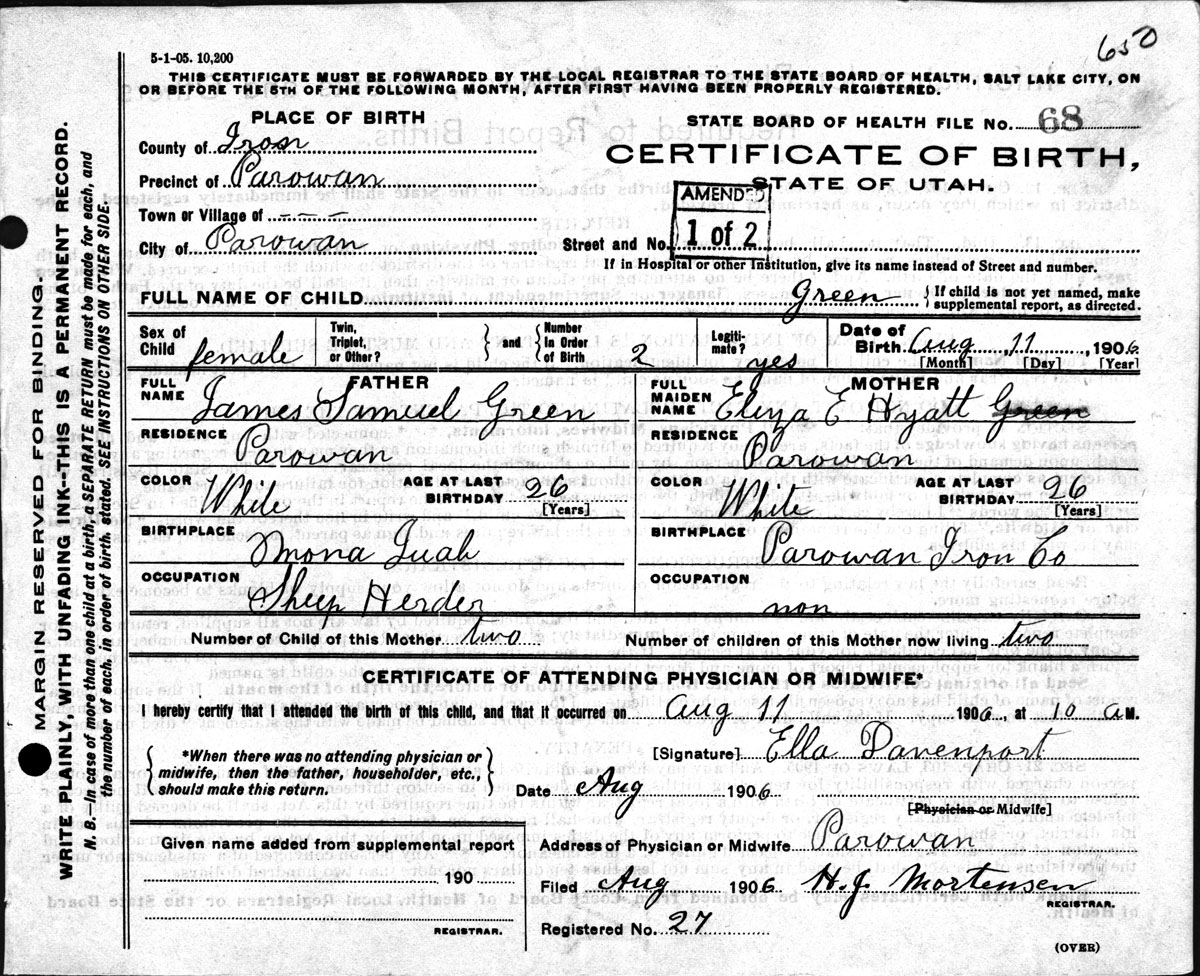 650
5-1-05. 10,200
THIS CERTIFICATE MUST BE FORWARDED BY THE LOCAL REGISTRAR TO THE STATE BOARD OF HEALTH, SALT LAKE CITY, ON
OR BEFORE THE 5TH OF THE FOLLOWING MONTH, AFTER FIRST HAVING BEEN PROPERLY REGISTERED.
PLACE OF BIRTH
County of Iron
Precinct of Parowan
Town or Village of - - -
City of Parowan
STATE BOARD OF HEALTH FILE No. 68
CERTIFICATE OF BIRTH,
STATE OF UTAH.
AMENDED
1 of 2
Street and No.
If in Hospital or other Institution, give its name instead of Street and number.
FULL NAME OF CHILD Green { If child is not yet named, make
supplemental report, as directed.
Sex of Child female
Twin, Triplet, or Other? } and { Number in Order of Birth 2
Legitimate? yes
Date of Birth Aug, 11, 1906
[Month] [Day] [Year]
FATHER
FULL NAME James Samuel Green
RESIDENCE Parowan
COLOR White AGE AT LAST BIRTHDAY 26
[Years]
BIRTHPLACE Mona Juab
OCCUPATION Sheep Herder
MOTHER
FULL MAIDEN NAME Eliza E Hyatt Green
RESIDENCE Parowan
COLOR White AGE AT LAST BIRTHDAY 26
[Years]
BIRTHPLACE Parowan Iron Co
OCCUPATION non
Number of Child of this Mother two Number of children of this Mother now living two
CERTIFICATE OF ATTENDING PHYSICIAN OR MIDWIFE*
I hereby certify that I attended the birth of this child, and that it occurred on Aug 11 1906, at 10 a M.
{ *When there was no attending physician or
midwife, then the father, householder, etc.,
should make this return. }
[Signature] Ella Davenport
Date Aug 1906
[Physician or Midwife]
Given name added from supplemental report
190
REGISTRAR.
Address of Physician or Midwife Parowan
Filed Aug 1906 H. J. Mortensen
REGISTRAR.
Registered No. 27
(OVER)
MARGIN RESERVED FOR BINDING.
WRITE PLAINLY, WITH UNFADING INK--THIS IS A PERMANENT RECORD.
N. B.--In case of more than one child at a birth, a SEPARATE RETURN must be made for each, and
the number of each, in order of birth, stated. SEE INSTRUCTIONS ON OTHER SIDE.